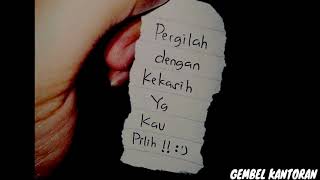 Pergilah
dengan
Kekasih
Yg
Kau
Pilih !! :')
GEMBEL KANTORAN